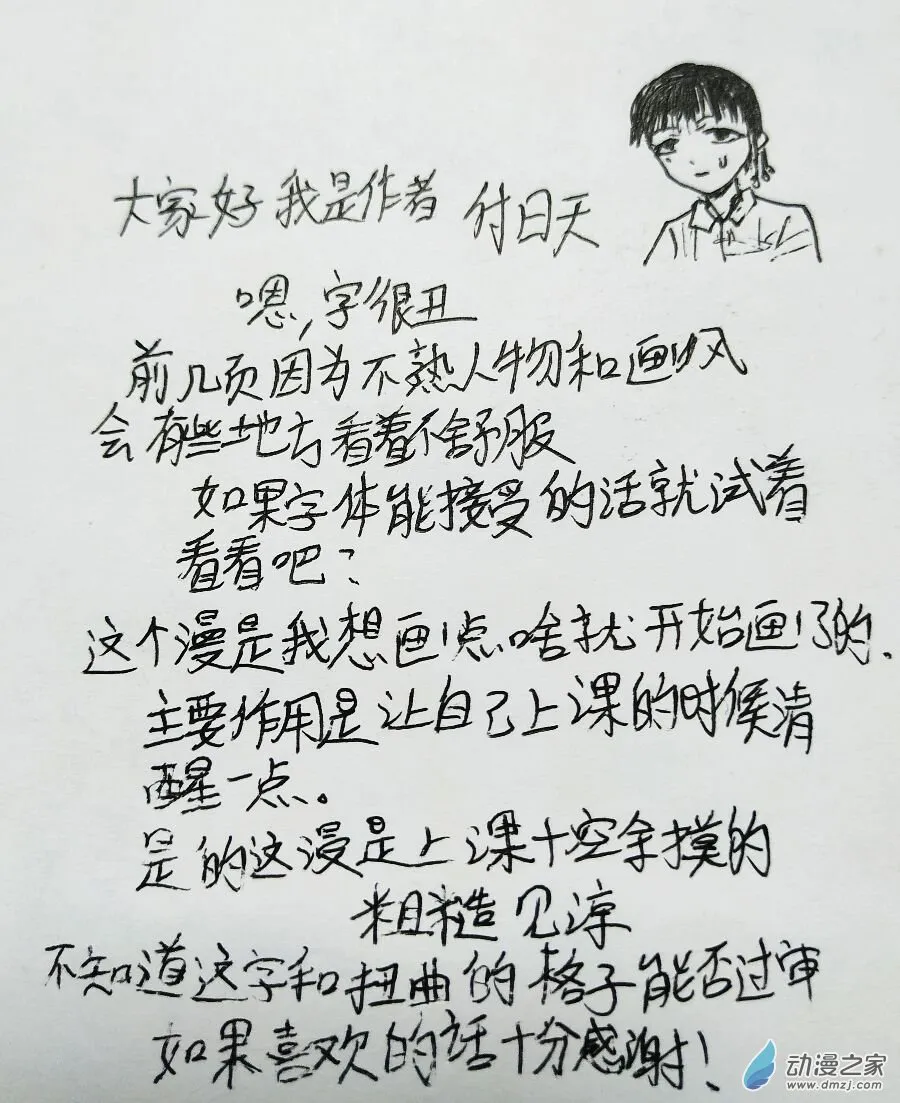 大家好 我是作者 付日天
嗯,字很丑
前几页因为不熟人物和画风
会有些地方看着不舒服
如果字体能接受的话就试着
看看吧?
这个漫是我想画点啥就开始画了的.
主要作用是让自己上课的时候清
醒一点。
是的这漫是上课+空余摸的
粗糙见凉
不知道这字和扭曲的格子能否过审
如果喜欢的话十分感谢!
动漫之家
www.dmzj.com